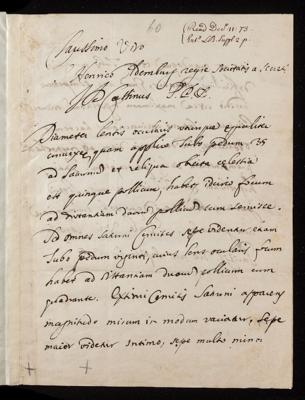 60
(Read Dec. 11. 73.
Ent. LB. Suppl. 2 p.
Clarissimo Viro
Henrico Oldemburg regiæ societatis a secretis
Cassinus P.S.D.
Diameter lentis ocularis utrinque æqualiter
convexæ, quam applico Tubo pedum 35
ad Saturnum et reliqua obiecta cælestia
est quinque pollicum, habet, idcirco focum
ad distantiam duorum pollicum cum semisse.
Sed omnes Saturni Comites sæpe videntur etiam
Tubo pedum viginti, cuius lens ocularis focum
habet ad distantiam duorum pollicum cum
quadrante. Extimi Comitis Saturni apparens
magnitudo mirum in modum variatur, sæpe
maior videtur intimo, sæpe multo minor